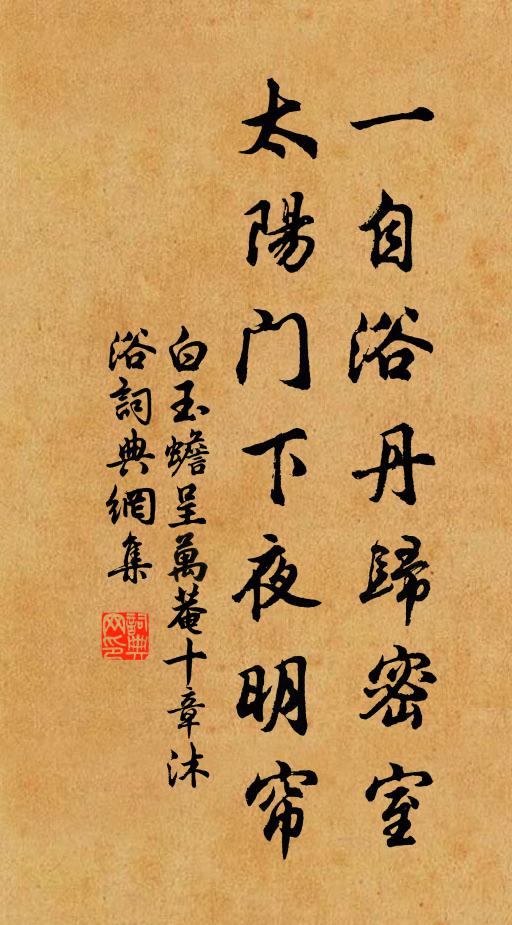 一自浴丹歸密室
太陽门下夜明帘
白玉蟾呈萬菴十章沐
浴詞典網集
詞典网印